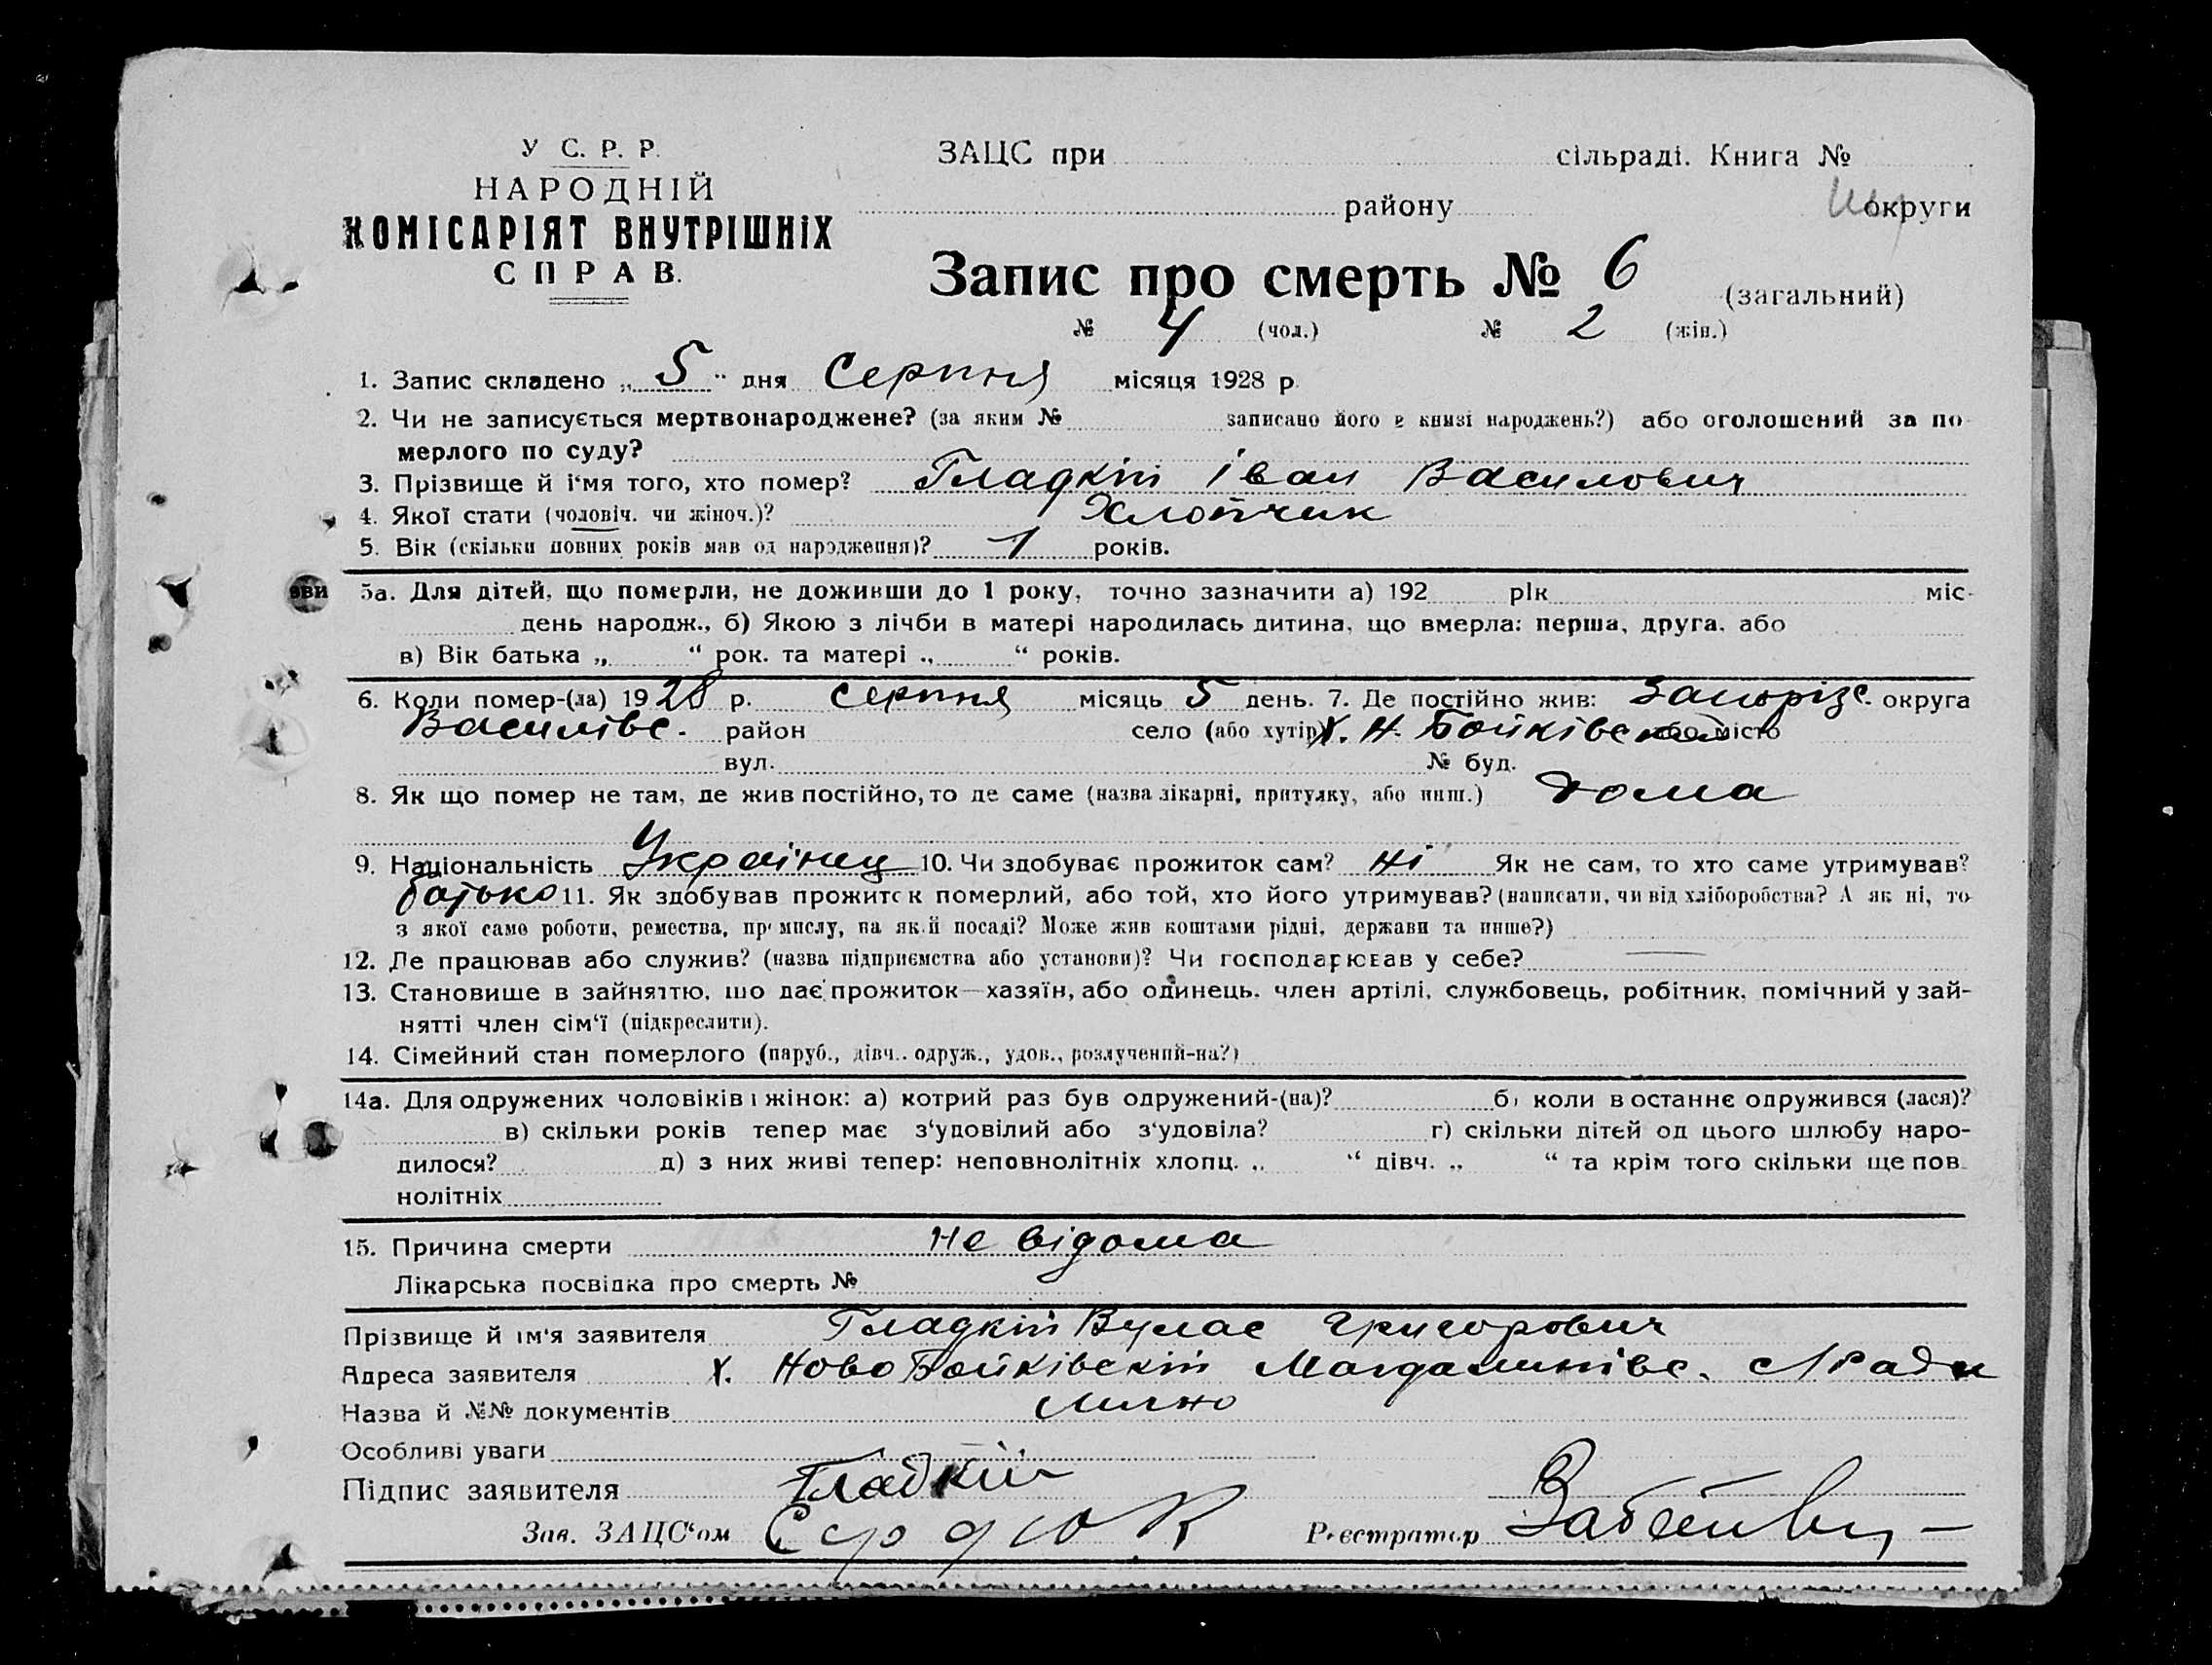 У С. Р. Р.
НАРОДНІЙ
КОМІСАРІЯТ ВНУТРІШНІХ
СПРАВ.
ЗАЦС при сільраді. Книга №
району округи
Запис про смерть № 6 (загальний)
№ 4 (чол.) № 2 (жін.)
1. Запис складено „ 5 “ дня Серпня місяця 1928 р.
2. Чи не записується мертвонароджене? (за яким № записано його в книзі народжень?) або оголошений за по
мерлого по суду?
3. Прізвище й і'мя того, хто помер? Гладкій Іван Василович
4. Якої стати (чоловіч. чи жіноч.)? Хлопчик
5. Вік (скільки повних років мав од народження)? 1 років.
ови
5а. Для дітей, що померли, не доживши до 1 року, точно зазначити а) 192 рік міс-
день народж., б) Якою з лічби в матері народилась дитина, що вмерла: перша, друга, або
в) Вік батька „ “ рок. та матері „ “ років.
6. Коли помер-(ла) 1928 р. серпня місяць 5 день. 7. Де постійно жив: Запоріз. округа
Василівс. район село (або хутір) Х. Н. Бойківський або місто
вул. № буд.
8. Як що помер не там, де жив постійно, то де саме (назва лікарні, притулку, або инш.) дома
9. Національність Українец 10. Чи здобуває прожиток сам? Ні Як не сам, то хто саме утримував?
батько 11. Як здобував прожиток померлий, або той, хто його утримував? (написати, чи від хліборобства? А як ні, то
з якої само роботи, ремества, промислу, на якій посаді? Може жив коштами рідні, держави та инше?)
12. Де працював або служив? (назва підприємства або установи)? Чи господарював у себе? —
13. Становище в зайняттю, що дає прожиток—хазяїн, або одинець, член артілі, службовець, робітник, помічний у зай-
нятті член сім'ї (підкреслити).
14. Сімейний стан померлого (паруб., дівч., одруж., удов., розлучений-на?)
14а. Для одружених чоловіків і жінок: а) котрий раз був одружений-(на)? б) коли в останнє одружився (лася)?
в) скільки років тепер має з'удовілий або з'удовіла? г) скільки дітей од цього шлюбу наро-
дилося? д) з них живі тепер: неповнолітніх хлопц. „ “ дівч. „ “ та крім того скільки ще пов
нолітніх
15. Причина смерти Не відома
Лікарська посвідка про смерть №
Прізвище й ім'я заявителя Гладкій Вулас Григорович
Адреса заявителя х. Ново Бойківскій Магдалинівс. с/Ради
Назва й №№ документів
Особливі уваги
Підпис заявителя Гладкій
Зав. ЗАЦС'ом Сердюк Реєстратор